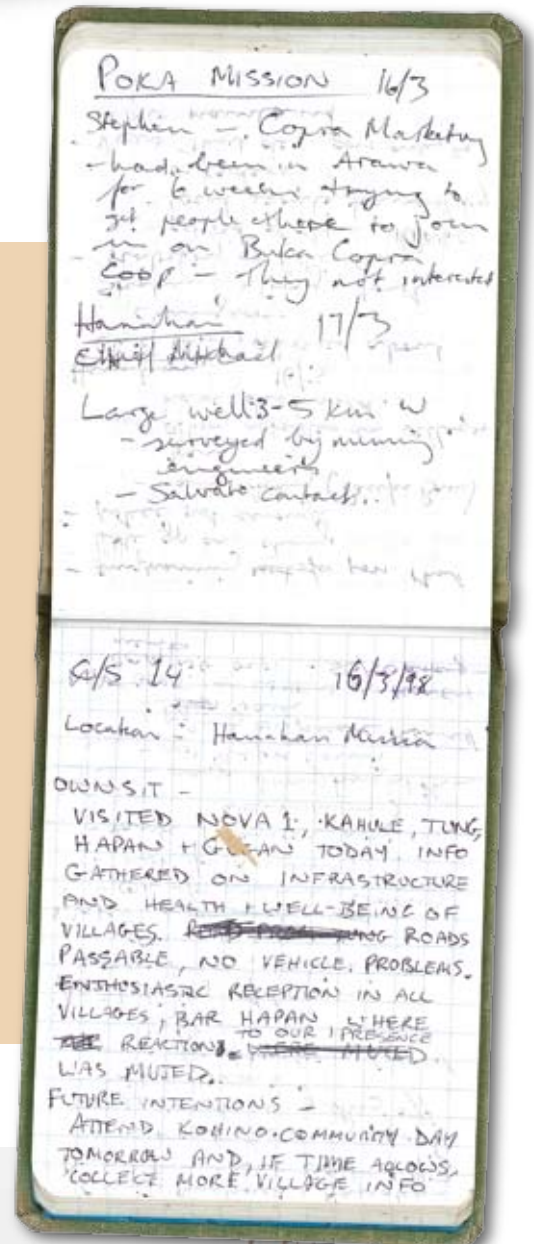 POKA MISSION 16/3
Stephen - Copra Marketing
- had been in Arawa
for 6 weeks trying to
get people there to join
in on Buka Copra
COOP - They not interested
Hanahan 17/3
Michael
Large well 3-5 km W
- surveyed by mining
engineers
- Salvato contact.
14 16/3/98
Location: Hanahan Mission
OWNSIT -
VISITED NOVA 1, KAHULE, TUNG,
HAPAN + GUGAN TODAY. INFO
GATHERED ON INFRASTRUCTURE
AND HEALTH + WELL-BEING OF
VILLAGES. ROADS
PASSABLE, NO VEHICLE PROBLEMS.
ENTHUSIASTIC RECEPTION IN ALL
VILLAGES, BAR HAPAN WHERE
REACTION TO OUR PRESENCE
WAS MUTED.
FUTURE INTENTIONS -
ATTEND KOHINO COMMUNITY DAY
TOMORROW AND, IF TIME ALLOWS,
COLLECT MORE VILLAGE INFO